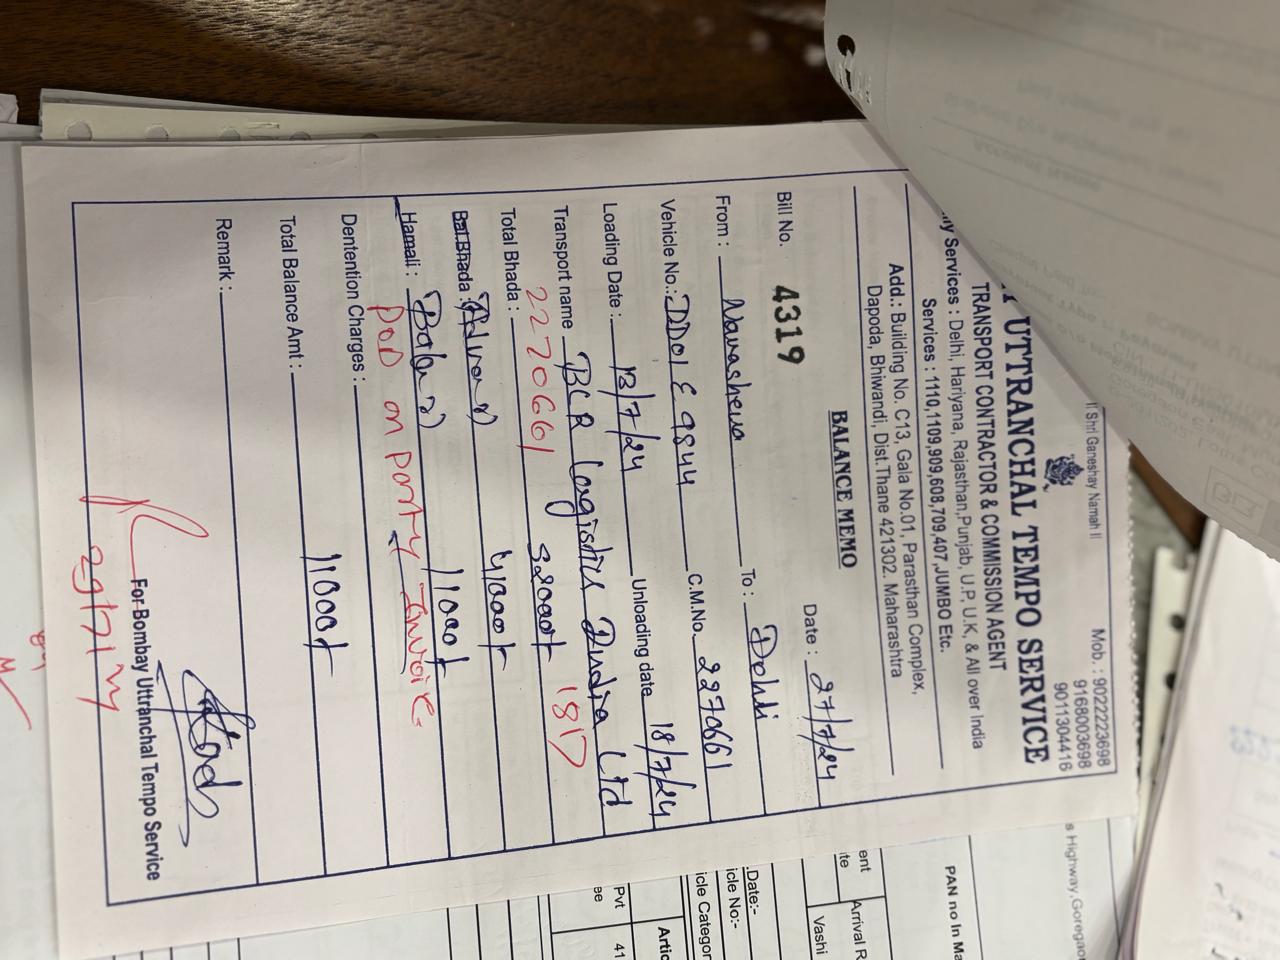 || Shri Ganeshay Namah ||
Mob. : 9022223698
9168003698
9011304416
UTTRANCHAL TEMPO SERVICE
TRANSPORT CONTRACTOR & COMMISSION AGENT
ly Services : Delhi, Hariyana, Rajasthan,Punjab, U.P, U.K, & All over India
Services : 1110,1109,909,608,709,407,JUMBO Etc.
Add.: Building No. C13, Gala No.01, Parasthan Complex,
Dapoda, Bhiwandi, Dist.Thane 421302. Maharashtra
BALANCE MEMO
Bill No. 4319 Date : 27/7/24
From : Navasheva To : Dehli
Vehicle No.: DD01E9844 C.M.No. 2270661
Loading Date : 13/7/24 Unloading date 18/7/24
Transport name BCR Logistics India Ltd
2270661 181D
Total Bhada : 52000/-
Bal.Bhada : 41000/-
Hamali : 11000/-
POD on party Invoice
Dentention Charges :
Total Balance Amt : 11000/-
Remark :
For Bombay Uttranchal Tempo Service
s Highway,Goregaon
PAN no In Ma
ent
te
Arrival R
Vashi
.Date:-
icle No:-
icle Categor
Artic
Pvt
ee
41